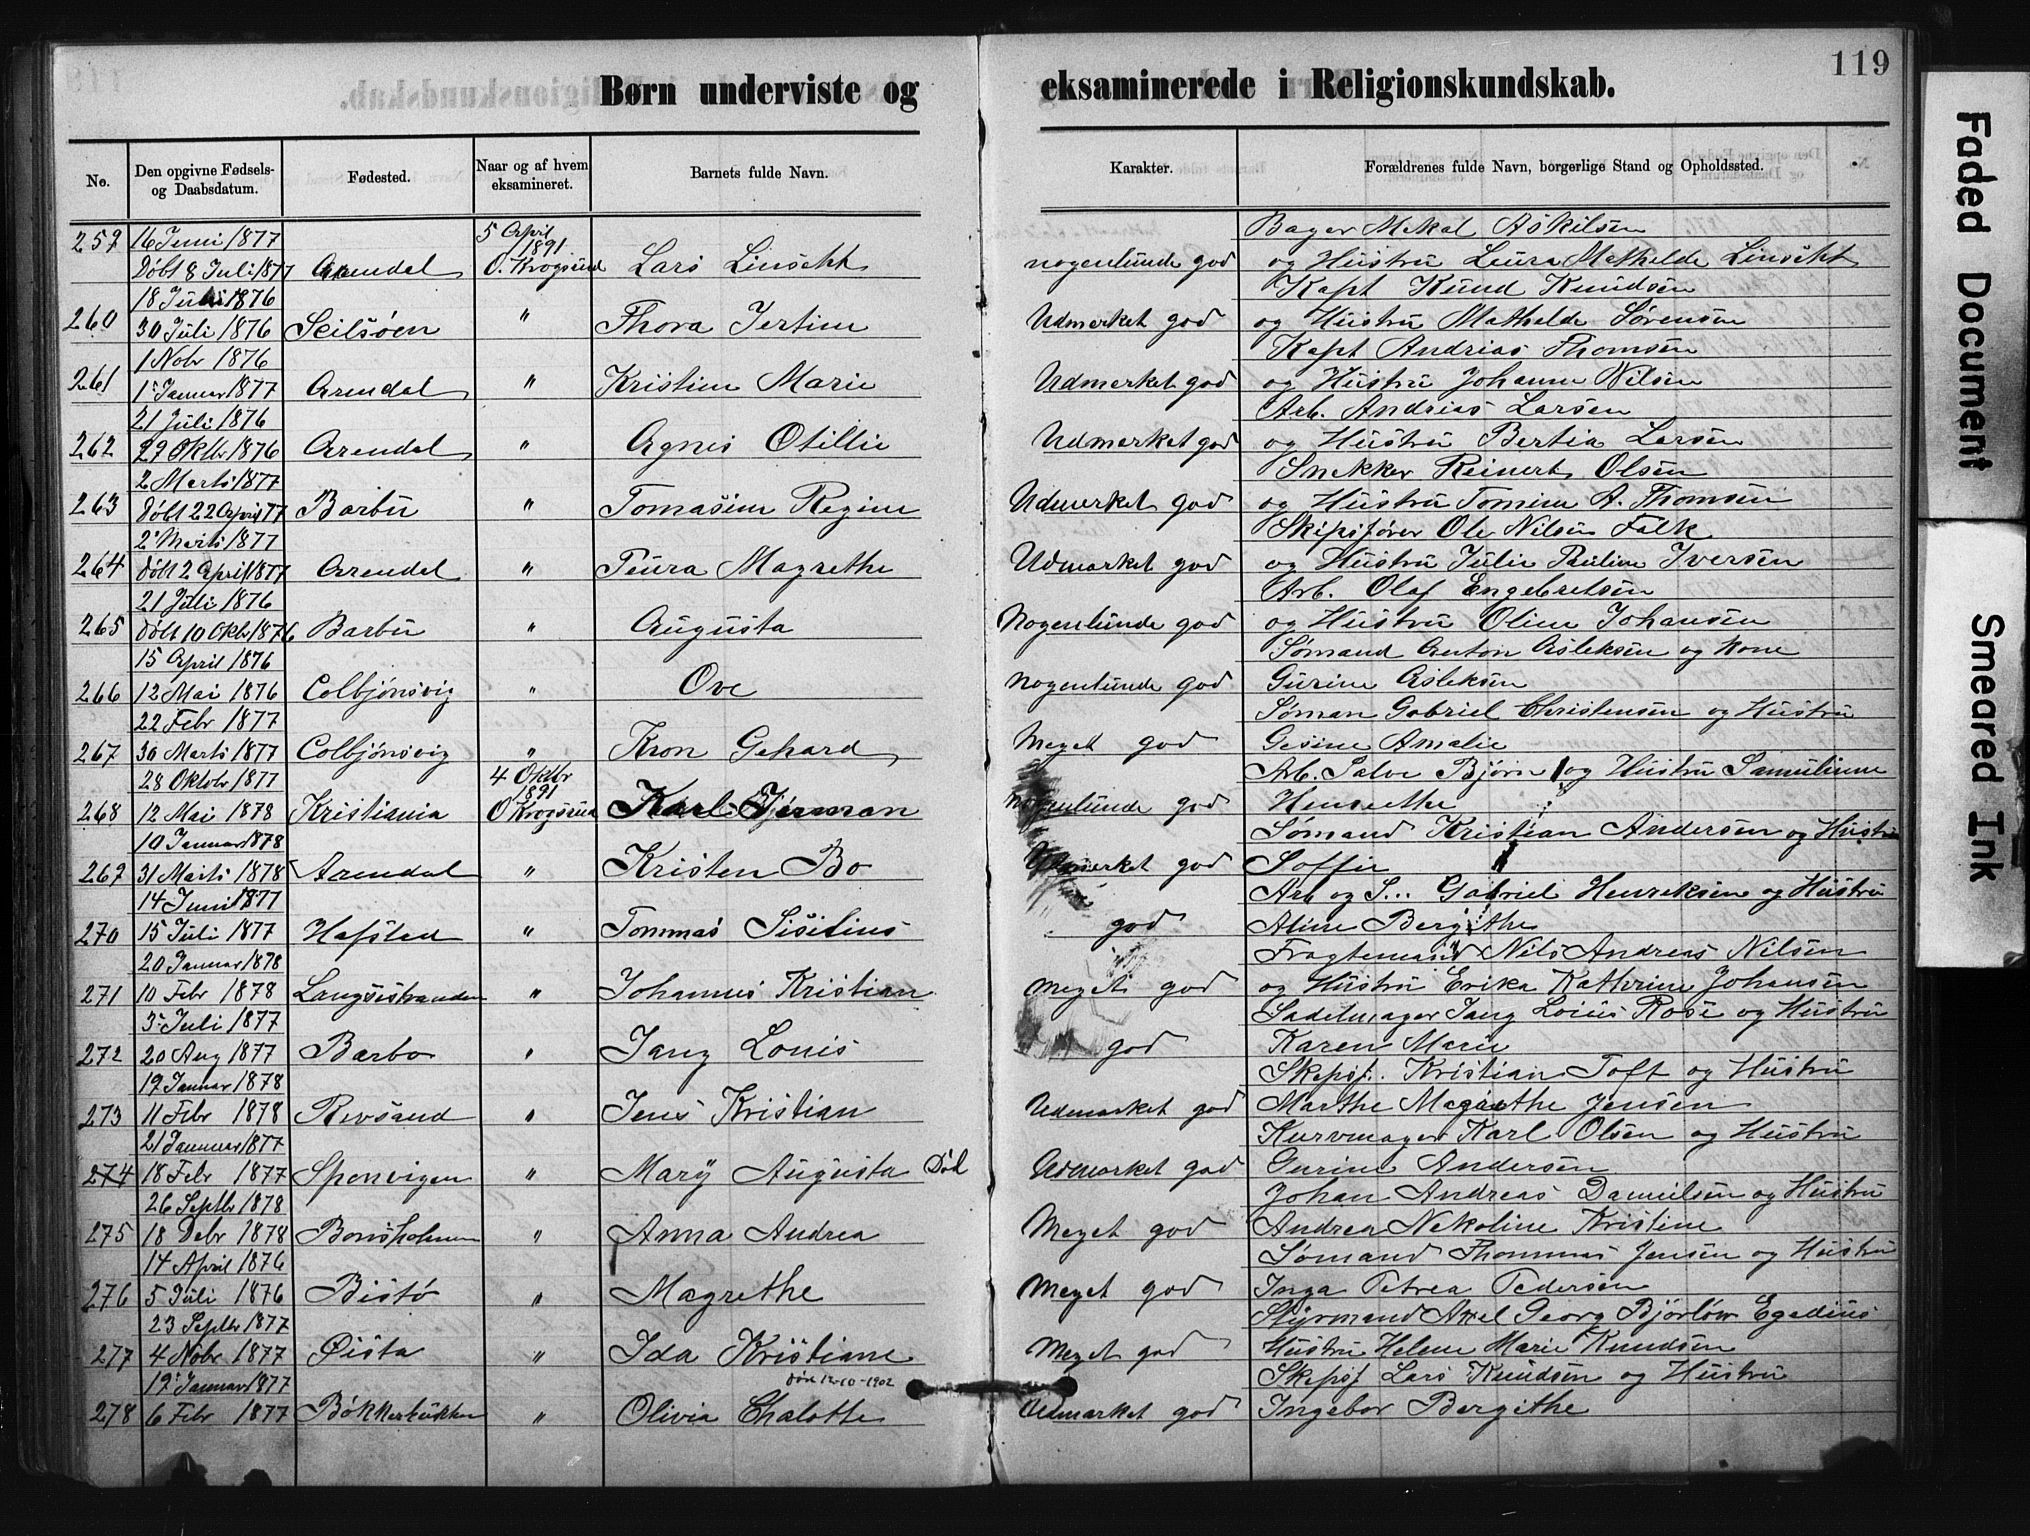 119
Børn underviste og eksaminerede i Religionskundskab.
No. Den opgivne Fødsels- og Daabsdatum. Fødested. Naar og af hvem eksamineret. Barnets fulde Navn. Karakter. Forældrenes fulde Navn, borgerlige Stand og Opholdssted.
16 Juni 1877 5 April 1891 Bager Mekal Askilsen
259 Døbt 8 Juli 1877 Arendal O. Krogsrud Lars nogenlunde god og Hustru Laura Mathelde
18 Juli 1876 Kapt Knud Knudsen
260 30 Juli 1876 Seilsøen " Thora Jertine Udmerket god og Hustru Mathelde Sørensen
1 Nobr 1876 Kapt Andrias Thomsen
261 1 Januar 1877 Arendal " Kristine Marie Udmerket god og Hustru Johanne Nilsen
21 Juli 1876 Arb. Andrias Larsen
262 29 Oktbr 1876 Arendal " Agnes Otillie Udmerket god og Hustru Bertia Larsen
2 Marts 1877 Snekker Reinert Olsen
263 Døbt 22 April 77 Barbu " Tomasine Regine Udmerket god og Hustru Tomine A. Thomsen
2 Marts 1877 Skipsfører Ole Nilsen Falk
264 Døbt 2 April 1877 Arendal " Teura Magrethe Udmarket god og Hustru Julie Pauline Iversen
21 Juli 1876 Arb. Olaf Engebretsen
265 Døbt 10 Okbr 1876 Barbu " Augusta Nogenlunde god og Hustru Oline Johansen
15 April 1876 Sømand Anton Asleksen og Kone
266 12 Mai 1876 Colbjønsvig " Ove Nogenlunde god Gurine Asleksen
22 Febr 1877 Søman Gabriel Christensen og Hustru
267 30 Marts 1877 Colbjønsvig " Kron Gehard Meget god Gesine Amalie
28 Oktobr 1877 4 Oktbr 1891 Arb. Salve Bjørn og Hustru Samuline
268 12 Mai 1878 Kristiania O Krogsrud Karl Herman Nogenlunde god
10 Januar 1878 Sømand Kristian Andersen og Hustru
269 31 Marts 1878 Arendal " Kristen Bo Udmerket god Soffie
14 Juni 1877 Arb og S... Gabriel Henriksen og Hustru
270 15 Juli 1877 Hafsted " Tommas Sisilius god Aline Bergithe
20 Januar 1878 Fragtemand Nils Andreas Nilsen
271 10 Febr 1878 Langsestranden " Johannes Kristian Meget god og Hustru Erika Kathrine Johansen
3 Juli 1877 Sadelmager Jang Loius Rose og Hustru
272 20 Aug 1877 Barbo " Jang Louis god Karen Marie
19 Januar 1878 Skipsf. Kristian Toft og Hustru
273 11 Febr 1878 Revsand " Jens Kristian Udmarket god Marthe Magrethe Jensen
21 Januar 1877 Kurvmager Karl Olsen og Hustru
274 18 Febr 1877 Sponvigen " Mary Augusta Død Udmarket god Gurine Andersen
26 Septbr 1878 Johan Andreas Danielsen og Hustru
275 18 Debr 1878 " Anna Andrea Meget god Andrea Nekoline Kristine
14 April 1876 Sømand Thommas Jensen og Hustru
276 5 Juli 1876 Bistø " Magrethe Meget god Inga Petrea Pedersen
23 Septbr 1877 Styrmand Axel Georg Bjørløw Egedius
277 4 Nobr 1877 Øista " Ida Kristiane Meget god Hustru Helene Marie Knudsen
19 Januar 1877 død 12-10-1902 Skipsf Lars Knudsen og Hustru
278 6 Febr 1877 " Olivia Chalotte Udmarket god Ingebor Bergithe
Faded Document
Smeared Ink